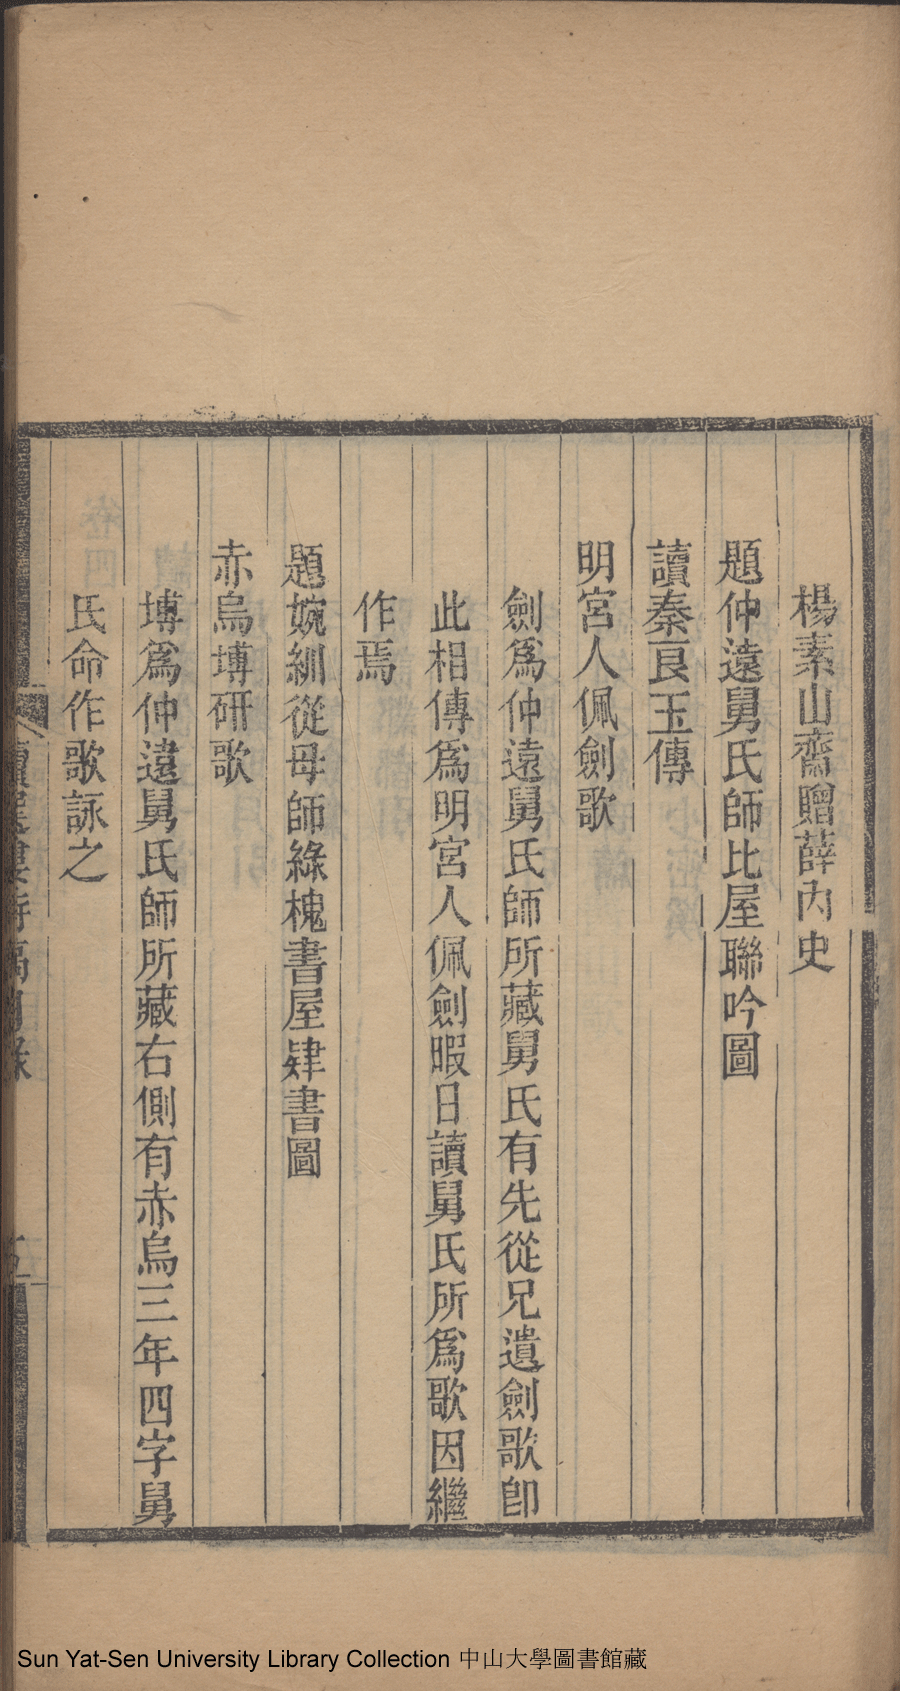 楊素山齋贈薛內史
題仲遠舅氏師比屋聯吟圖
讀秦良玉傳
明宮人佩劍歌
劍爲仲遠舅氏師所藏舅氏有先從兄遺劍歌卽
此相傳爲明宮人佩劍暇日讀舅氏所爲歌因繼
作焉
題婉紃從母師綠槐書屋肄書圖
赤烏塼研歌
塼爲仲遠舅氏師所藏右側有赤烏三年四字舅
氏命作歌詠之
Sun Yat-Sen University Library Collection 中山大學圖書館藏